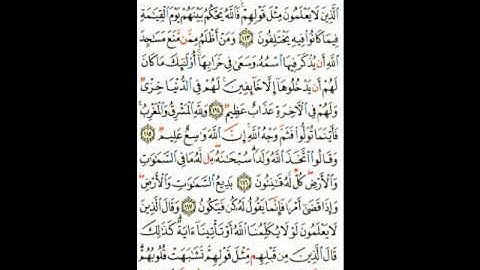 ٱلَّذِينَ لَا يَعْلَمُونَ مِثْلَ قَوْلِهِمْ ۚ فَٱللَّهُ يَحْكُمُ بَيْنَهُمْ يَوْمَ ٱلْقِيَـٰمَةِ
فِيمَا كَانُوا۟ فِيهِ يَخْتَلِفُونَ ١١٣ وَمَنْ أَظْلَمُ مِمَّن مَّنَعَ مَسَـٰجِدَ
ٱللَّهِ أَن يُذْكَرَ فِيهَا ٱسْمُهُۥ وَسَعَىٰ فِى خَرَابِهَآ ۚ أُو۟لَـٰٓئِكَ مَا كَانَ
لَهُمْ أَن يَدْخُلُوهَآ إِلَّا خَآئِفِينَ ۚ لَهُمْ فِى ٱلدُّنْيَا خِزْىٌ
وَلَهُمْ فِى ٱلْـَٔاخِرَةِ عَذَابٌ عَظِيمٌ ١١٤ وَلِلَّهِ ٱلْمَشْرِقُ وَٱلْمَغْرِبُ ۚ
فَأَيْنَمَا تُوَلُّوا۟ فَثَمَّ وَجْهُ ٱللَّهِ ۚ إِنَّ ٱللَّهَ وَٰسِعٌ عَلِيمٌ ١١٥
وَقَالُوا۟ ٱتَّخَذَ ٱللَّهُ وَلَدًا ۗ سُبْحَـٰنَهُۥ ۖ بَل لَّهُۥ مَا فِى ٱلسَّمَـٰوَٰتِ
وَٱلْأَرْضِ ۖ كُلٌّ لَّهُۥ قَـٰنِتُونَ ١١٦ بَدِيعُ ٱلسَّمَـٰوَٰتِ وَٱلْأَرْضِ ۖ
وَإِذَا قَضَىٰٓ أَمْرًا فَإِنَّمَا يَقُولُ لَهُۥ كُن فَيَكُونُ ١١٧ وَقَالَ ٱلَّذِينَ
لَا يَعْلَمُونَ لَوْلَا يُكَلِّمُنَا ٱللَّهُ أَوْ تَأْتِينَآ ءَايَةٌ ۗ كَذَٰلِكَ
قَالَ ٱلَّذِينَ مِن قَبْلِهِم مِّثْلَ قَوْلِهِمْ ۘ تَشَـٰبَهَتْ قُلُوبُهُمْ ۗ